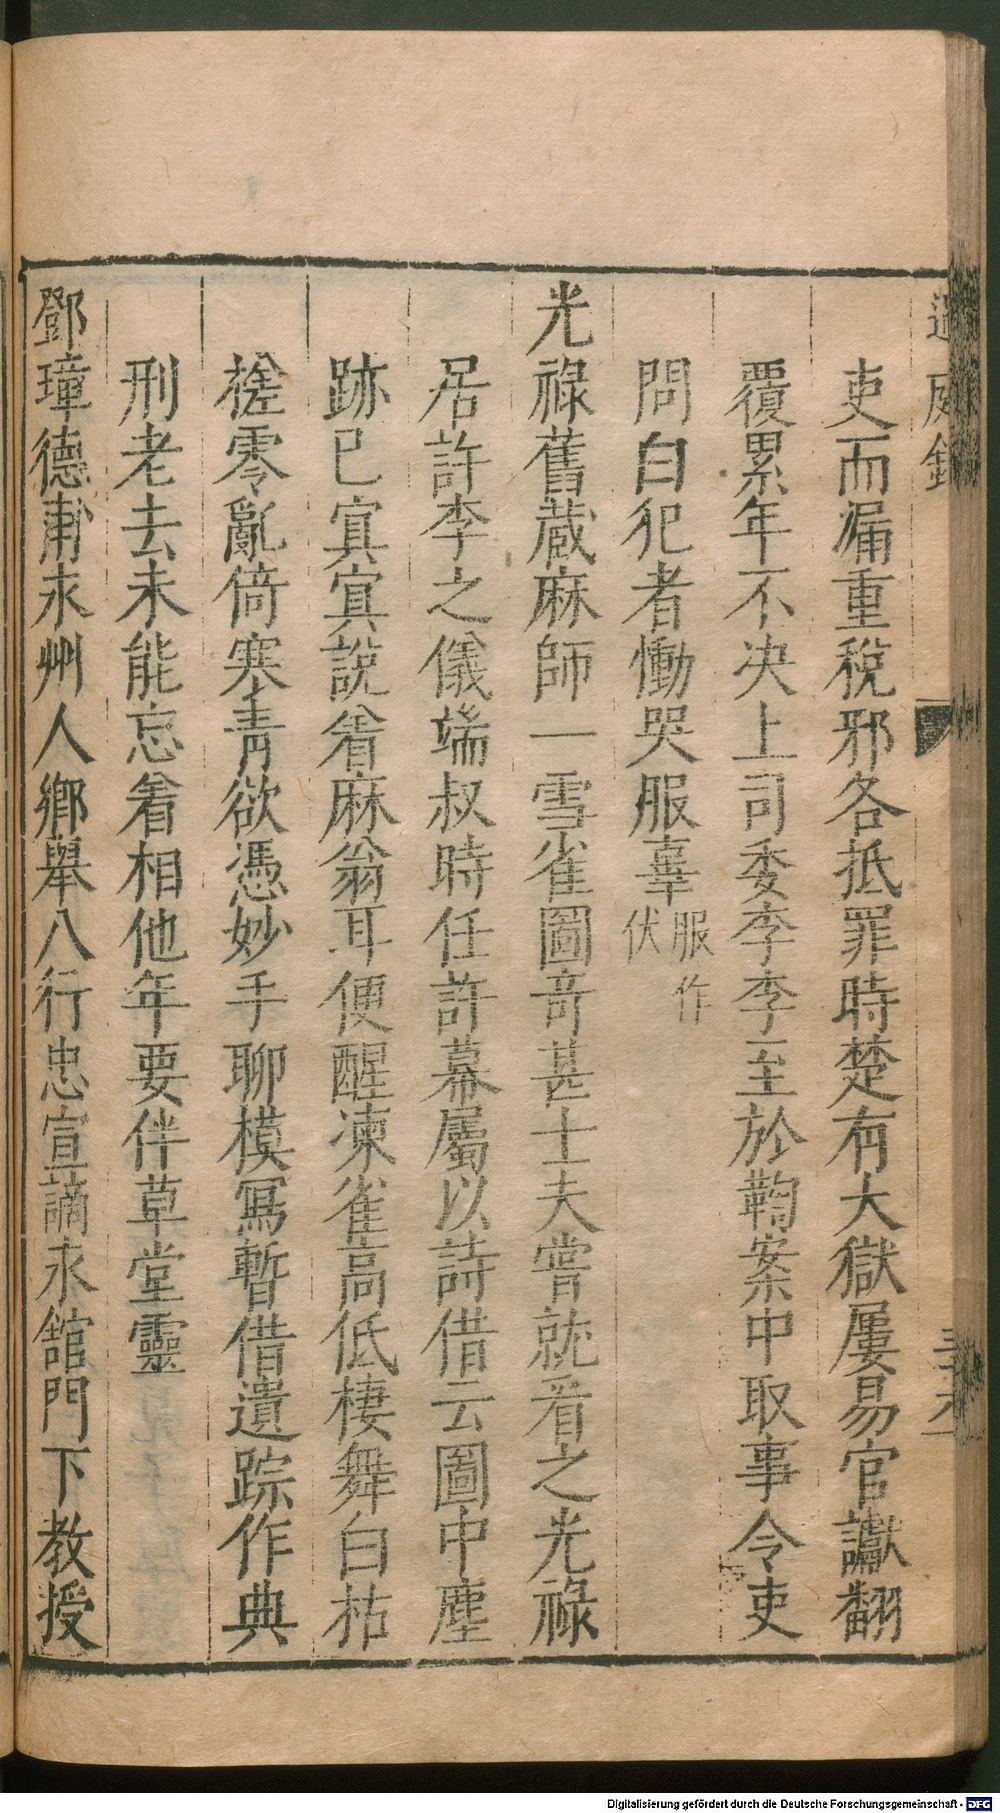 過庭錄
吏而漏重稅邪各抵罪時楚有大獄屢易官讞翻
覆累年不决上司委李李至於鞫案中取事令吏
問白犯者慟哭服辜服作伏
光祿舊蔵麻師一雪雀圖竒甚士夫嘗就看之光祿
居許李之儀端叔時任許幕屬以詩借云圖中塵
跡已寘寘說着麻翁耳便醒凍雀高低棲舞白枯
槎零亂倚寒青欲憑妙手聊模冩暫借遺踪作典
刑老去未能忘着相他年要伴草堂靈
鄧璋德甫永州人鄉舉八行忠宣謫永舘門下教授
Digitalisierung gefördert durch die Deutsche Forschungsgemeinschaft - DFG